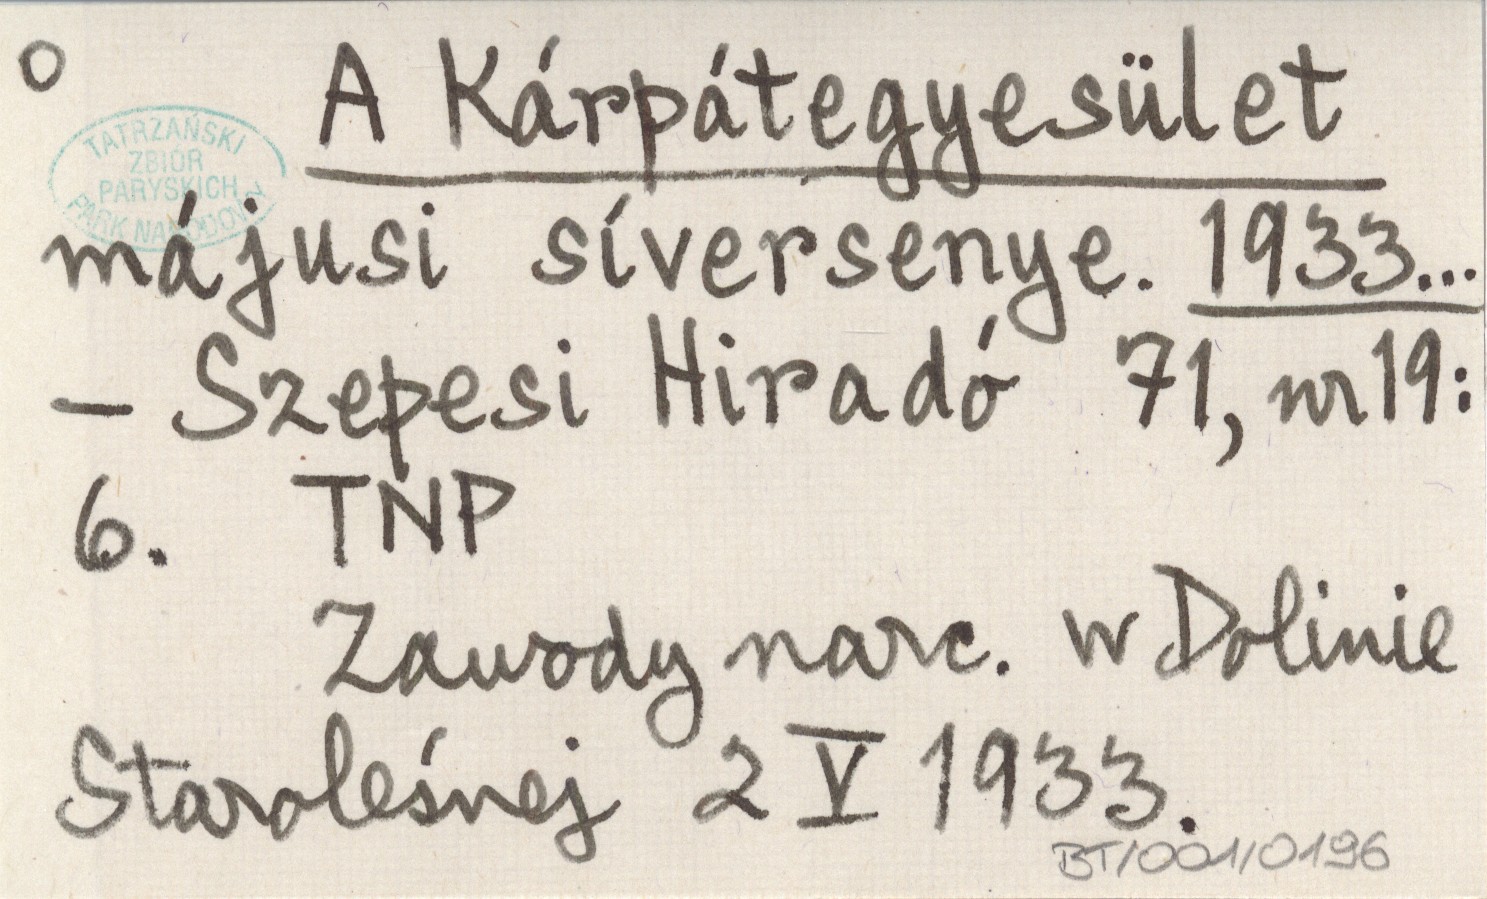 O
A Kárpátegyesület
TATRZAŃSKI
ZBIÓR
PARYSKICH
PARK NARODOWY
májusi síversenye. 1933...
– Szepesi Hiradó 71, nr 19:
6. TNP
Zawody narc. w Dolinie
Staroleśnej 2 V 1933.
BT/001/0196